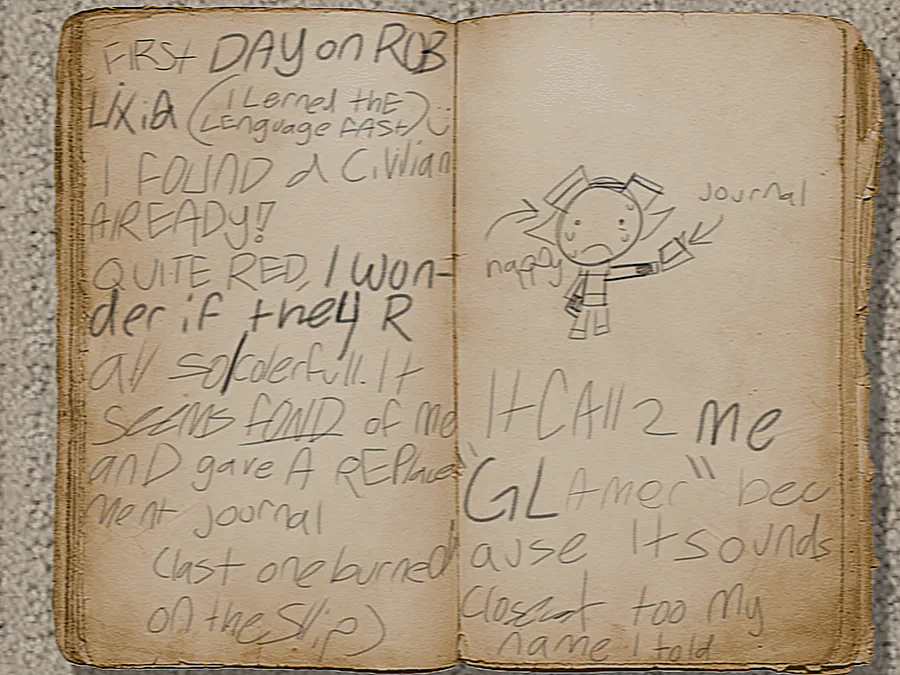 FIRSt DAY on ROB
LiXiA (I Lerned thE
LEnguage FASt) :)
I FOUND A Civilian
AlREADy!?
QUITE RED, I won-
der if they R
all so/colerfull. It
SEEMS FOND of me
anD gave A REPlace
ment journal
(last one burned
on the Slip)
journal
happy
It CAll2 me
"GLAmer" bec
ause It sounds
closest too my
name I told